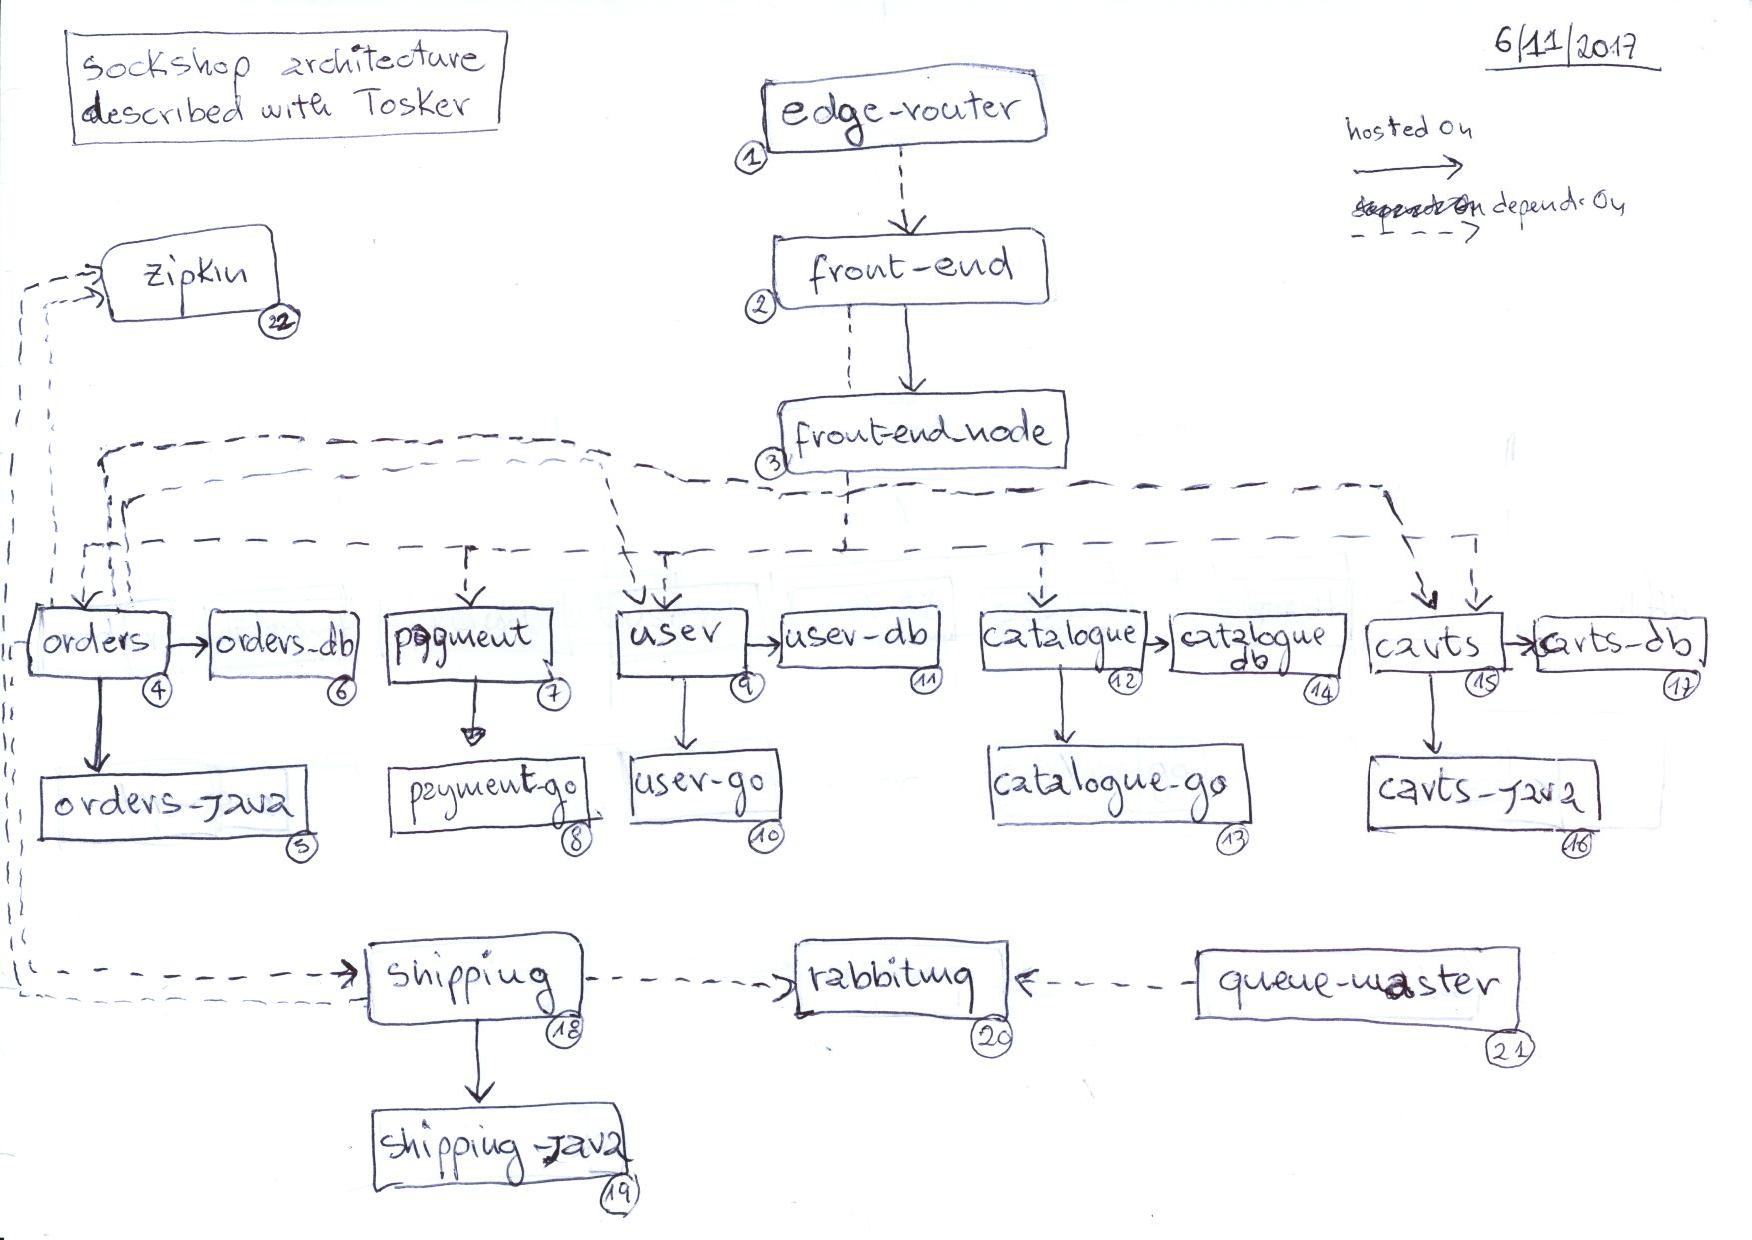 sockshop architecture
described with Tosker
6/11/2017
hosted on
depends on
edge-router
1
front-end
2
zipkin
22
front-end_node
3
orders
4
orders_db
6
payment
7
user
9
user-db
11
catalogue
12
catalogue
db
14
carts
15
carts-db
17
orders-java
5
payment-go
8
user-go
10
catalogue-go
13
carts-java
16
shipping
18
rabbitmq
20
queue-master
21
shipping-java
19